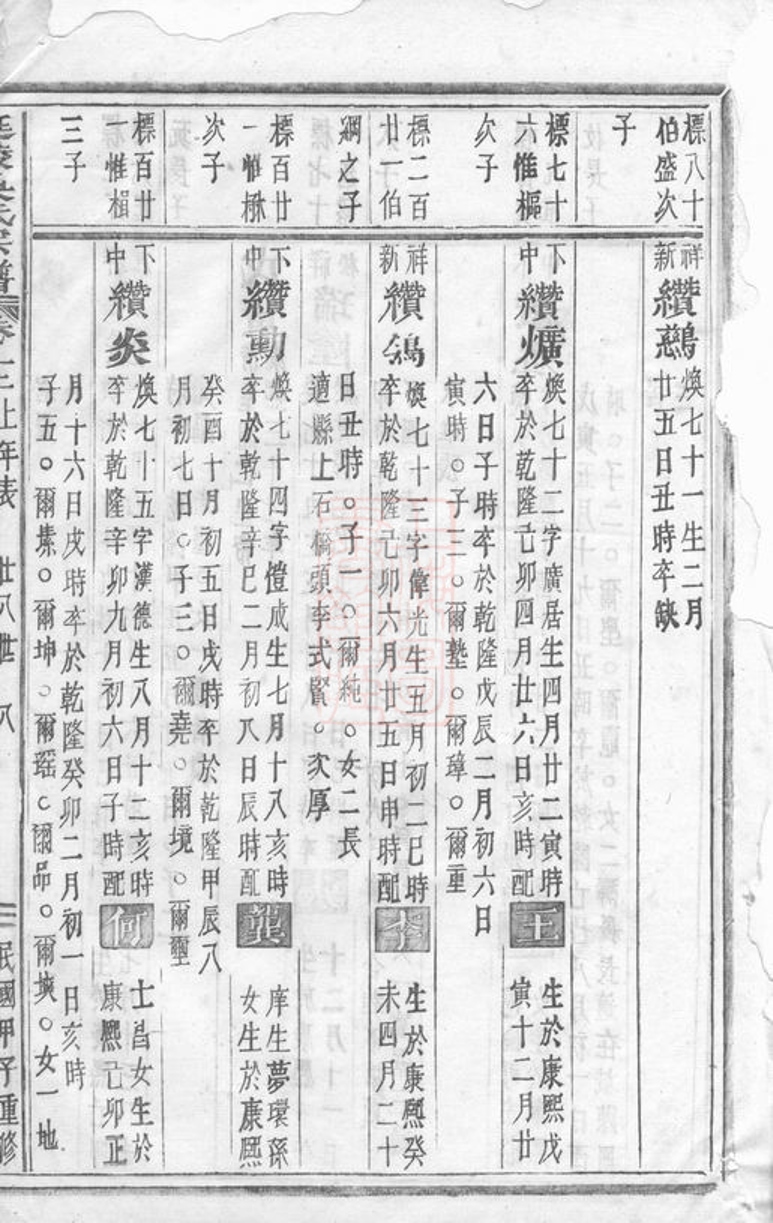 標八十
伯盛次
子
祥
新
纘鵞
煥七十一生二月
廿五日丑時卒缺
標七十
六惟樞
次子
下
中
纘爌
煥七十二字廣居生四月廿二寅時
卒於乾隆己卯四月廿六日亥時配
王
生於康熙戊
寅十二月廿
六日子時卒於乾隆戊辰二月初六日
寅時○子三○爾塾○爾璋○爾重
標二百
廿一伯
綱之子
祥
新
纘鴿
煥七十三字偉光生五月初二巳時
卒於乾隆己卯六月廿五日申時配
李
生於康熙癸
未四月二十
日丑時○子一○爾純○女二長
適縣上石橋頭李式賢○次厚
標百廿
一惟楙
次子
下
中
纘勳
煥七十四字愷成生七月十八亥時
卒於乾隆辛巳二月初八日辰時配
龔
庠生夢環孫
女生於康熙
癸酉十月初五日戌時卒於乾隆甲辰八
月初七日○子三○爾堯○爾境○爾壐
標百廿
一惟楫
三子
下
中
纘炎
煥七十五字漢德生八月十二亥時
卒於乾隆辛卯九月初六日子時配
何
士昌女生於
康熙己卯正
月十六日戌時卒於乾隆癸卯二月初一日亥時
子五○爾㙡○爾坤○爾瑶○爾品○爾塽○女一地
氏宗譜 卷一二上年表 廿八世 八 三 民國甲子重修